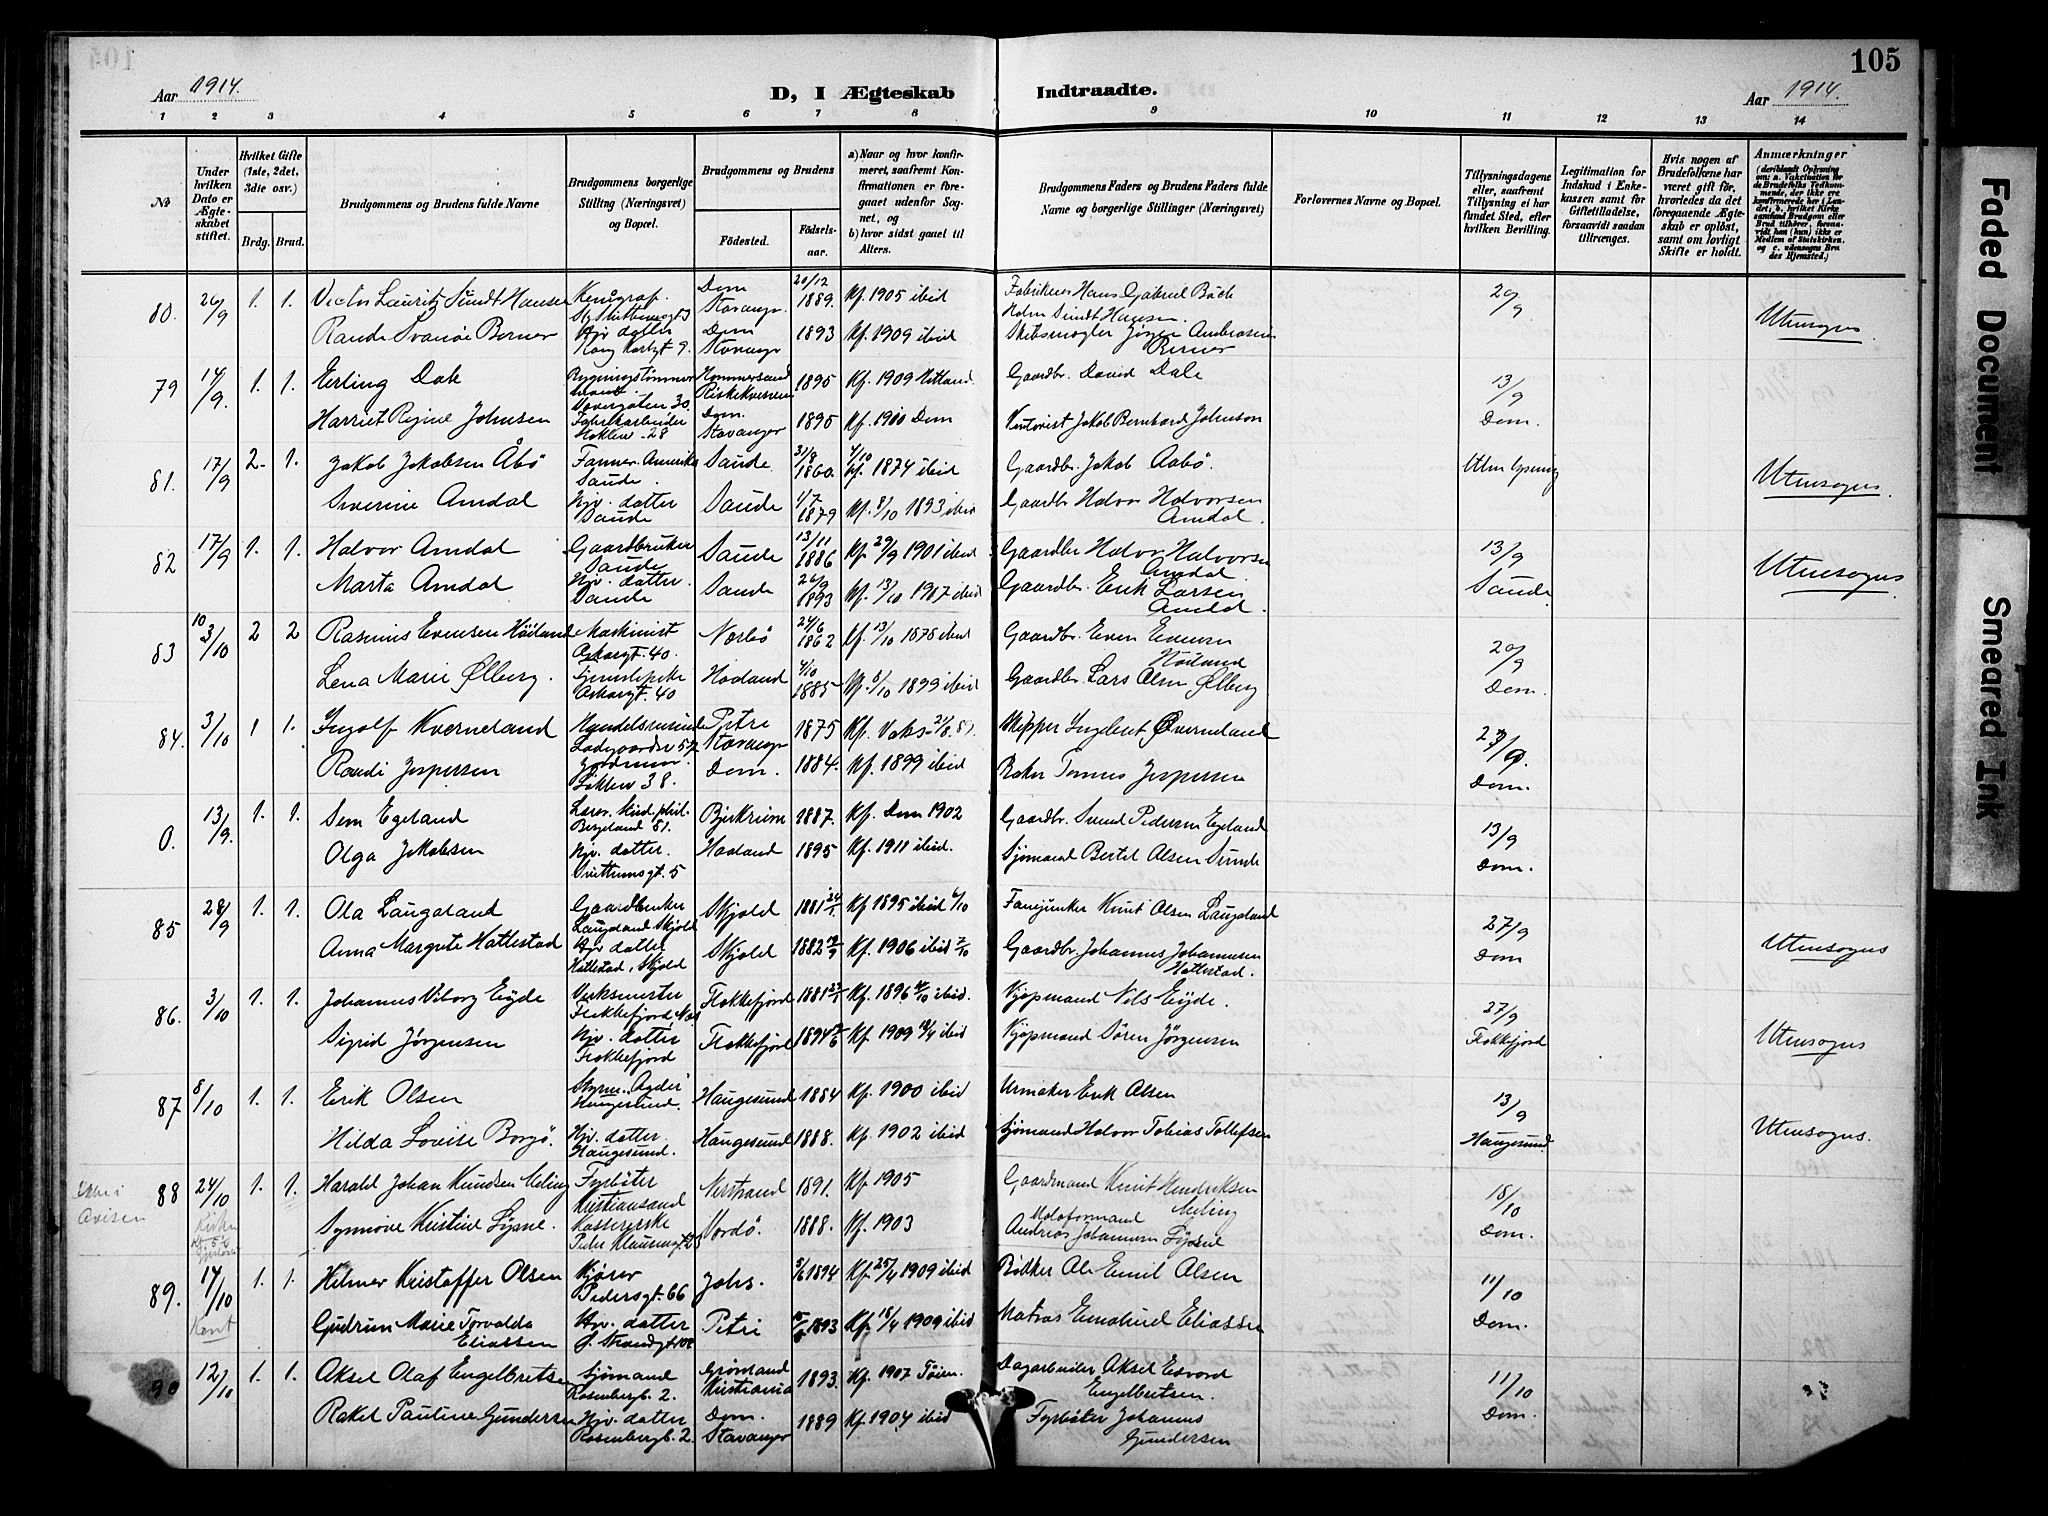 105
Aar 1914.
D, I Ægteskab Indtraadte.
Aar 1914.
1 2 3 4 5 6 7 8 9 10 11 12 13 14
No
Under hvilken Dato er Ægteskabet stiftet.
Hvilket Gifte (1ste, 2det, 3die osv.)
Brdg. Brud.
Brudgommens og Brudens fulde Navne
Brudgommens borgerlige Stilling (Næringsvei) og Bopæl.
Brudgommens og Brudens
Födested. Födselsaar.
a) Naar og hvor konfirmeret, saafremt Konfirmationen er foregaaet udenfor Sognet, og
b) hvor sidst gaaet til Alters.
Brudgommens Faders og Brudens Faders fulde Navne og borgerlige Stillinger (Næringsvei)
Forlovernes Navne og Bopæl.
Tillysningsdagene eller, saafremt Tillysning ei har fundet Sted, efter hvilken Bevilling.
Legitimation for Indskud i Enkekassen samt for Giftetilladelse, forsaavidt saadan tiltrænges.
Hvis nogen af Brudefolkene har været gift för, hvorledes da det foregaaende Ægteskab er oplöst, samt om lovligt Skifte er holdt.
Anmærkninger
80. 26/9 1. 1. Victor Lauritz Sundt Hansen Dom Stavanger 20/12 1889. Kf. 1905 ibid Fabrikeier Hans Gabriel Buch Holm Sundt Hansen. 20/9 Utensogns
Hjv. datter Kong Karlsgt 9. Dom Stavanger 1893 Kf. 1909 ibid Skibsmægler Jørgen Ambrosius Berner
79 14/9. 1. 1. Erling Dale 1895 Kf. 1909 Gaardbr. David Dale 13/9
Harriet Regine Johnsen Fabrikarbeider Dom. Stavanger 1895 Kf. 1910 Dom Jakob Bernhard Johnson Dom.
81. 17/9 2. 1. Jakob Jakobsen Åbö Farmer. Amerika Saude. Saude 31/8 1860. 4/10 Kf. 1874 ibid Gaardbr. Jakob Aabö. Uten lysning Utensogns.
Severine Amdal Hjv. datter Saude Saude 4/7 1879 Kf. 8/10 1893 ibid Gaardbr Halvor Halvorsen Amdal.
82 17/9 1. 1. Halvor Amdal Gaardbruker Saude Saude 13/11 1886 Kf. 29/9 1901 ibid Gaardbr Halvor Halvorsen Amdal. 13/9 Utensogns
Marta Amdal Hjv. datter. Saude Saude 26/9 1893 Kf. 13/10 1907 ibid Gaardbr. Erik Larsen Amdal. Saude
83 3/10 2 2 Rasmus Evensen Höiland Maskinist Oskarsgt. 40. Nærbö 24/6 1862 Kf. 13/10 1878 ibid Gaardbr. Even Evensen Höiland 20/9
Lena Marie Ølberg. Oskarsgt. 40 Haaland 4/10 1885 Kf. 8/10 1899 ibid Gaardbr. Lars Olsen Ølberg Dom.
84. 3/10 1 1. Ingolf Kverneland Ladegaardsv 57 Petri Stavanger 1875 Skipper Ingebret Qverneland 27/9.
Randi Jespersen Jordmor. 38. Dom. 1884. Kf. 1899 ibid Baker Tønnes Jespersen Dom.
0. 13/9. 1. 1. Sem Egeland Bergeland 81. Bjerkrim 1887. Kf. Dom 1902 Gaardbr. Svend Pedersen Egeland 13/9
Olga Jakobsen Hjv. datter. 5 Haaland 1895 Kf. 1911 ibid. Sjömand Bertel Olsen Sunde Dom.
85 28/9 1. 1. Ola Laugaland Gaardbruker Laugaland Skjold Skjold 1881 24/1. Kf 1895 ibid 6/10 Fanejunker Knut Olsen Laugaland 27/9 Utensogns
Anna Margrete Hattestad Hjv datter Hattestad, Skjold Skjold 1882 Kf. 1906 ibid 7/10 Gaardbr. Johannes Johannesen Hattestad. Dom
86. 3/10 1. 1. Johannes Viborg Eyde Verksmester Flekkefjord Flekkefjord 1881 Kf. 1896 4/10 ibid. Kjøpmand Nils Eyde. 27/9 Utensogns
Sigrid Jørgensen Hjv. datter Flekkefjord Flekkefjord 1894 Kf. 1909 ibid Kjøpmand Sören Jörgensen Flekkefjord
87 8/10 1. 1. Erik Olsen Styrm. "Agder" Haugesund. Haugesund 1884 Kf. 1900 ibid Urmaker Erik Olsen 13/9 Utensogns.
Hilda Lovise Borgö. Hjv. datter. Haugesund. Haugesund 1888. Kf. 1902 ibid Sjömand Halvor Tobias Tollefsen Haugesund
Ikke i Avisen
88 24/10 1. 1. Harald Johan Knudsen Meling Fyrböter Kristiansand Nerstrand 1891. Kf 1905 Gaardmand Knut Hendriksen Meling 18/10
Synnöve Kristine Lysne. Kassererske Vordö. 1888. Kf. 1903 Andreas Johannesen Dom.
89. 17/10 1. 1. Hilmer Kristoffer Olsen Kjörer Pedersgt. 66 Johs. 1894 Kf. 25/4 1909 ibid Bödker Ole Emil Olsen 11/10
Gudrun Marie Torvalda Eliassen Hjv. datter Petri 1893 Kf. 18/4 1909 ibid Matros Eliassen Dom.
90 12/10 1. 1. Aksel Olaf Engelbretsen Sjømand Rosenbergb. 2. Grønland Kristiania 1893. Kf. 1907 Töien. Dagarbeider Aksel Edvard Engelbretsen. 11/10
Rakel Pauline Gundersen Hjv. datter Rosenbergb. 2. Dom. Stavanger 1889 Kf. 1904 ibid Fyrböter Johannes Gundersen Dom.
Faded Document
Smeared Ink